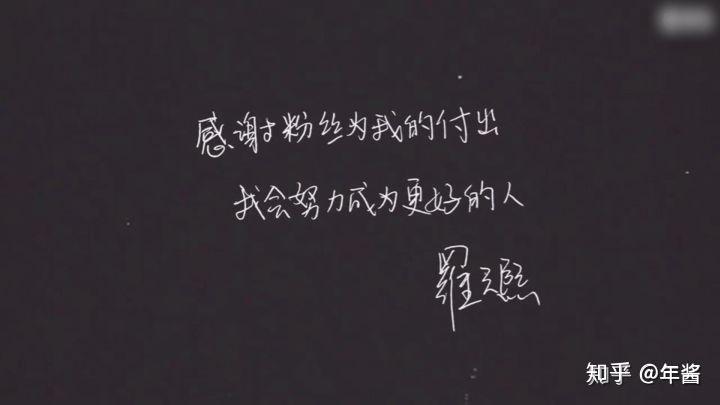 感谢粉丝为我的付出
我会努力成为更好的人
羅云熙
知乎 @年酱